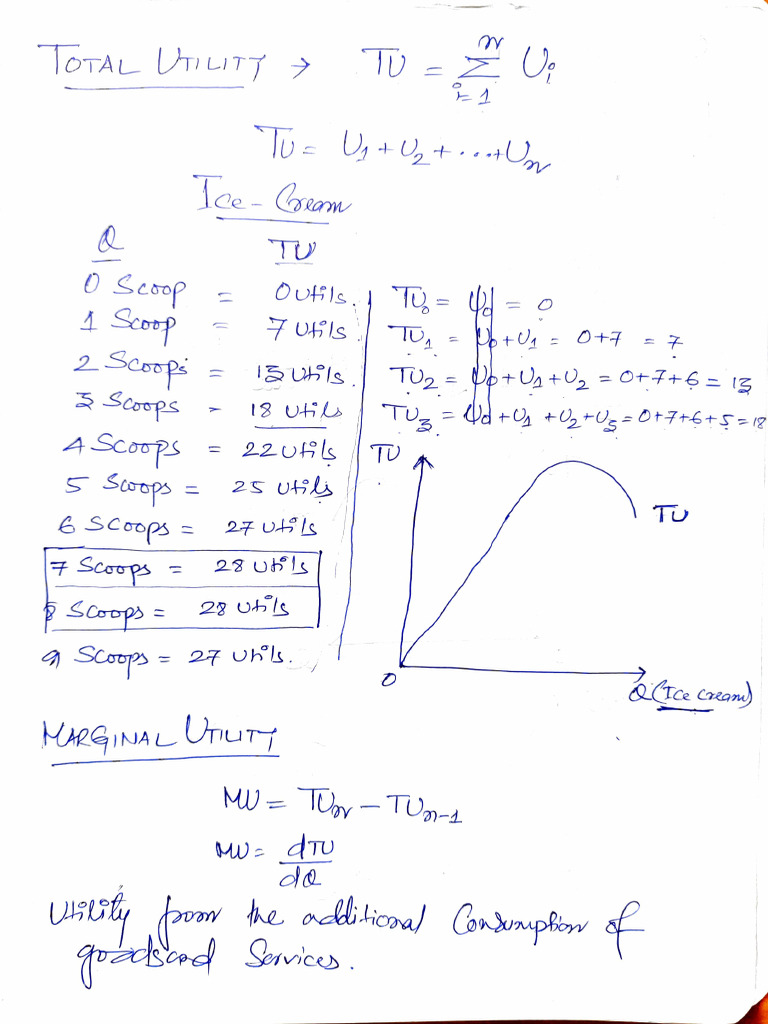 TOTAL UTILITY → TU = n Σ i=1 Ui
TU = U1 + U2 + ...+Un
Ice-Cream
Q TU
0 Scoop = 0 utils.
1 Scoop = 7 utils
2 Scoops = 13 utils.
3 Scoops = 18 utils
4 Scoops = 22 utils
5 Scoops = 25 utils
6 Scoops = 27 utils
7 Scoops = 28 utils
8 Scoops = 28 utils
9 Scoops = 27 utils.
TU0 = U0 = 0
TU1 = U0+U1 = 0+7 = 7
TU2 = U0+U1+U2 = 0+7+6 = 13
TU3 = U0+U1+U2+U3=0+7+6+5=18
TU
TU
0
Q (Ice cream)
MARGINAL UTILITY
MU = TUn - TUn-1
MU = dTU
dQ
Utility from the additional Consumption of
goods and Services.